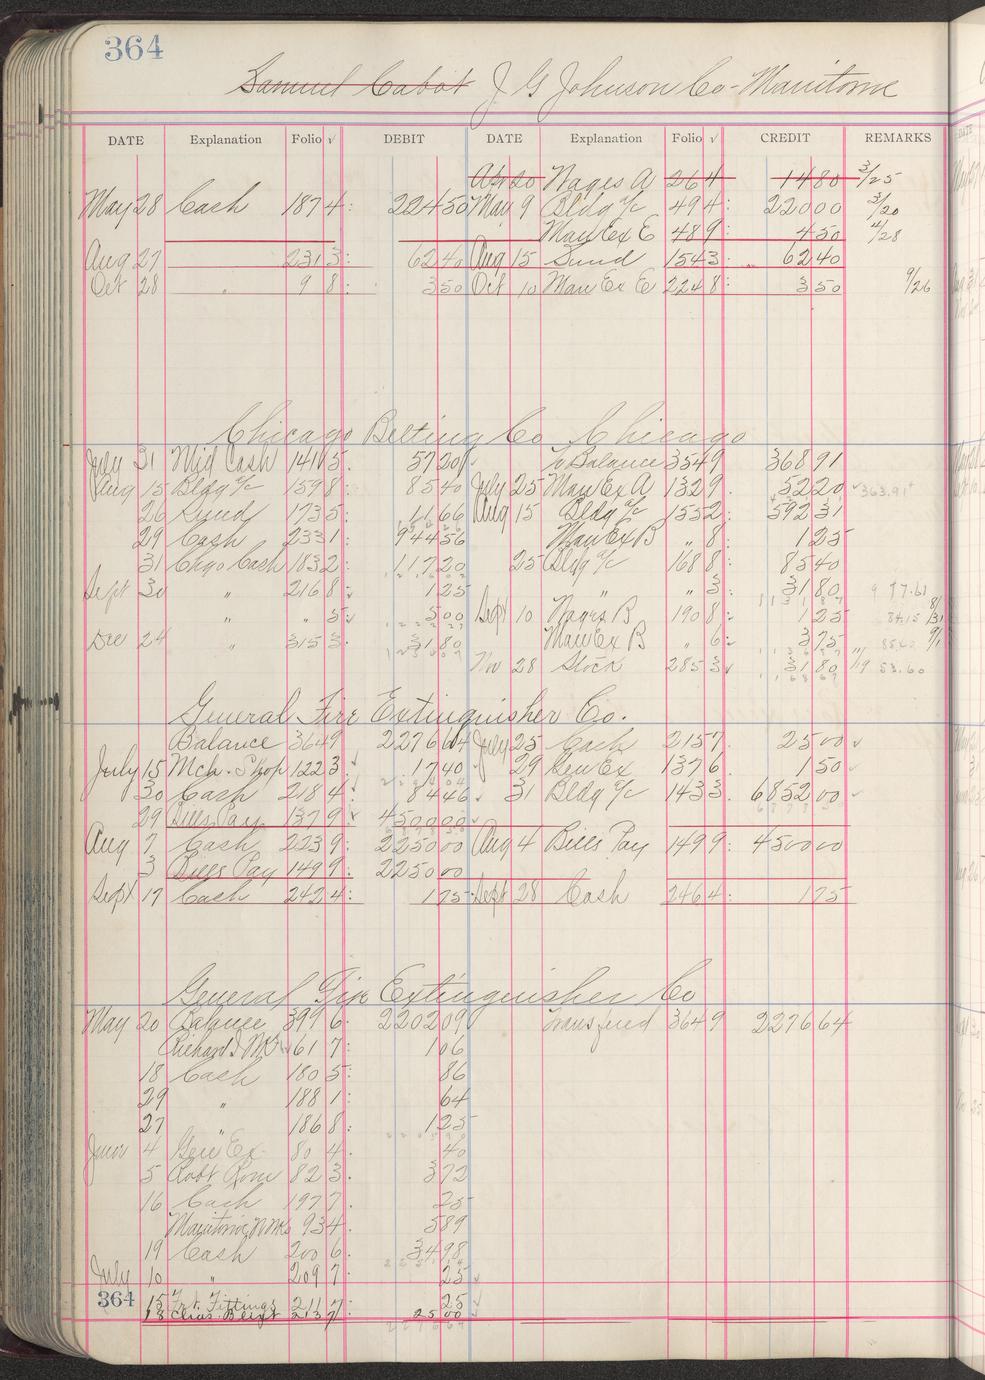 364
Samuel Cabot J G Johnson Co - Manitowoc
DATE Explanation Folio √ DEBIT DATE Explanation Folio √ CREDIT REMARKS
Apr 20 Wages A 264 1480 3/25
May 28 Cash 1874: 22450 May 9 Bldg a/c 494: 22000 3/20
Man Ex E 489: 450 4/28
Aug 27 2313: 6240 Aug 15 Sund 1543: 6240
Oct 28 " 98: 350 Oct 10 Man Ex E 2248: 350 9/26
Chicago Belting Co Chicago
July 31 Mid Cash 1415: 5720 To Balance 3549 36891
Aug 15 Bldg a/c 1598: 8540 July 25 Man Ex A 1329. 5220 363.91
26 Sund 1735: 1166 Aug 15 Bldg a/c 1552: 59231
29 Cash 2331: 94456 Man Ex B " 8: 125
31 Chgo Cash 1832: 11720 25 Bldg a/c 1688: 8540
Sept 30 " 2168: 125 " " 3: 3180
" " 5 500 Sept 10 Wages B 1908: 125 84.15 8/31
Dec 24 " 3153 3180 Man Ex B " 6: 375 85.40 9/1
Nov 28 Stock 2853 3180 53.60
General Fire Extinguisher Co.
Balance 3649 227664 July 25 Cash 2157. 2500
July 15 Mch. Shop 1223: 1740 29 Gen Ex 1376. 150
30 Cash 2184: 8446 31 Bldg a/c 1433. 685200
29 Bills Pay 1379 450000
Aug 7 Cash 2239: 225000 Aug 4 Bills Pay 1499: 450000
3 Bills Pay 1499: 225000
Sept 17 Cash 2424: 175 Sept 28 Cash 2464: 175
General Fire Extinguisher Co
May 20 Balance 3996: 220209 Transfered 3649 227664
617: 106
18 Cash 1805: 86
29 " 1881: 64
27 " 1868: 125
June 4 Gen Ex 804. 40
5 Robt Rom 823. 372
16 Cash 1977. 25
Manitowoc 934. 589
19 Cash 2006. 3498
July 10 " 2097 25
364 15 Frt. Fittings 2117 25
18 Chas. 2137 2500